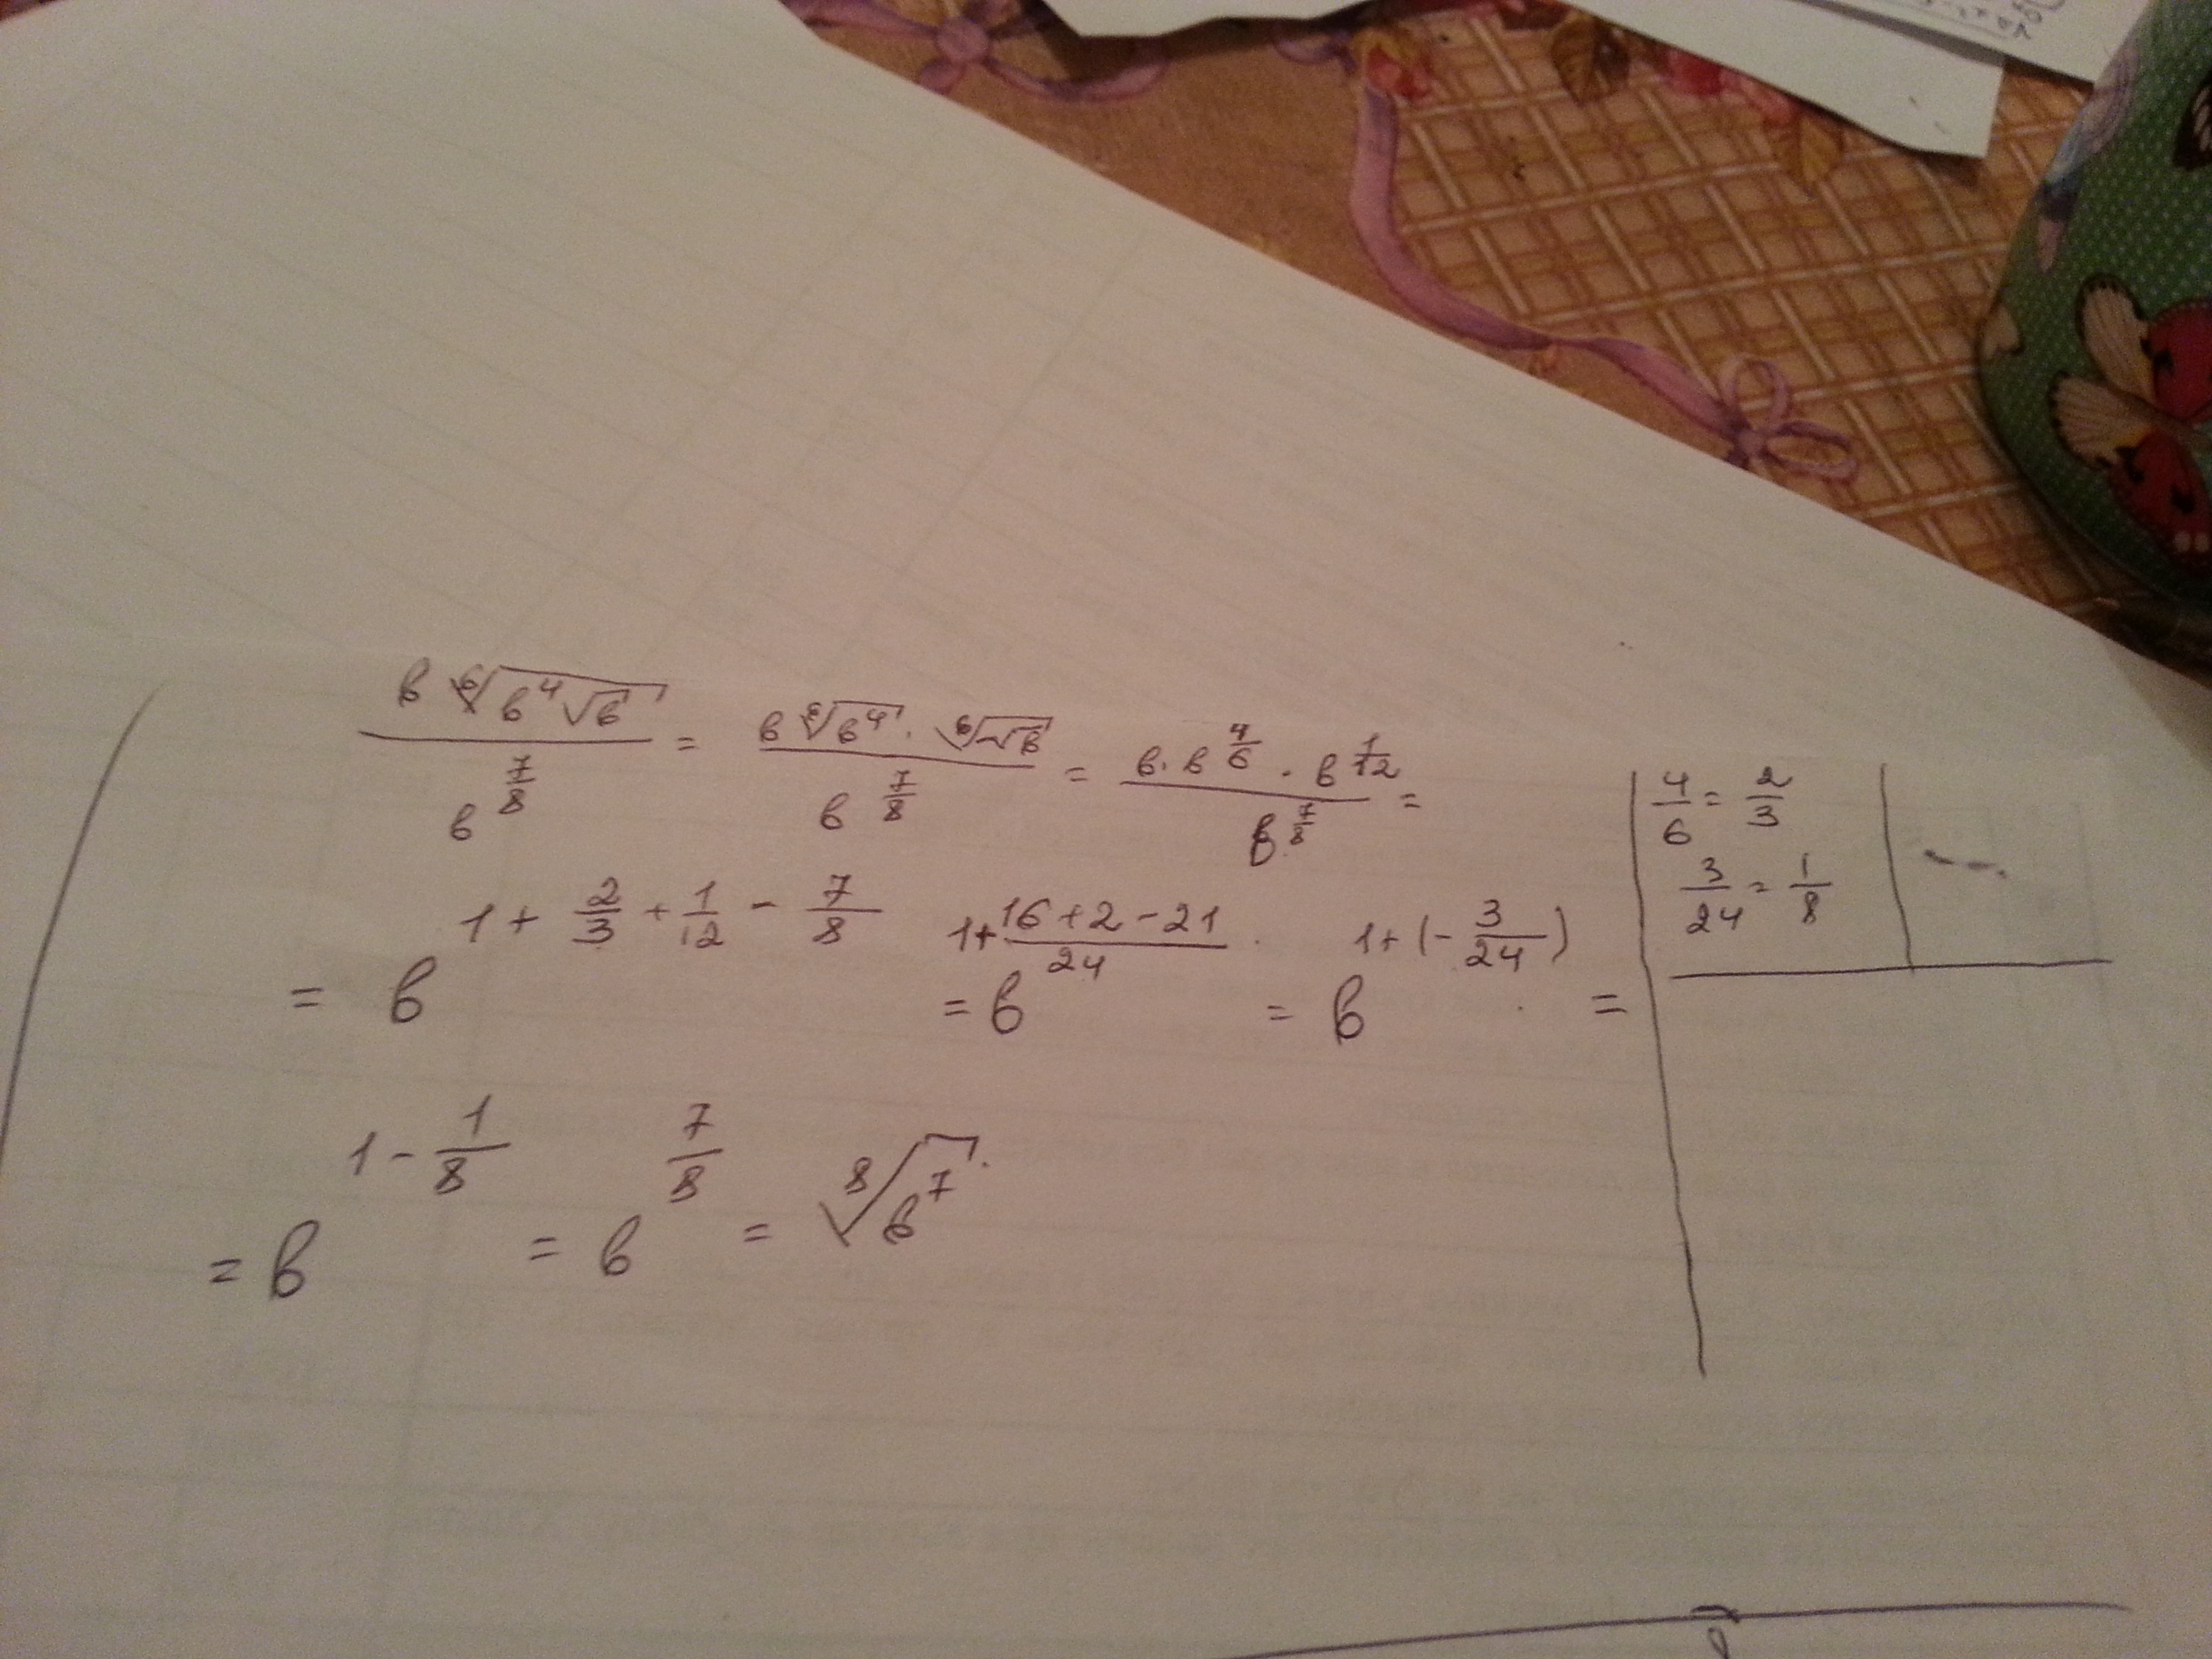 в ⁶√(в⁴√в) / в^(7/8) = в ⁶√(в⁴) · ⁶√(√в) / в^(7/8) = в · в^(4/6) · в^(1/12) / в^(7/8) =
= в^(1 + 2/3 + 1/12 - 7/8) = в^(1 + (16+2-21)/24) = в^(1 + (-3/24)) =
= в^(1 - 1/8) = в^(7/8) = ⁸√(в⁷)
4/6 = 2/3
3/24 = 1/8